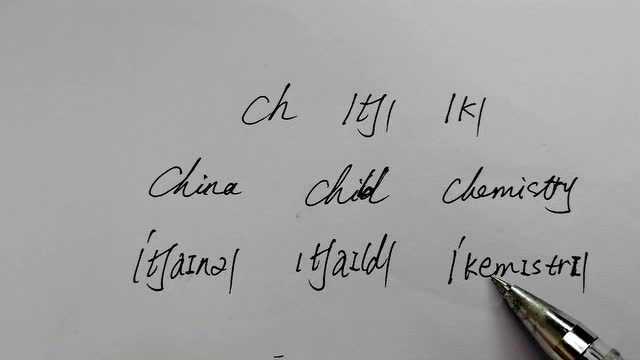 ch /tʃ/ /k/
China child chemistry
/ˈtʃaɪnə/ /tʃaɪld/ /ˈkemɪstrɪ/